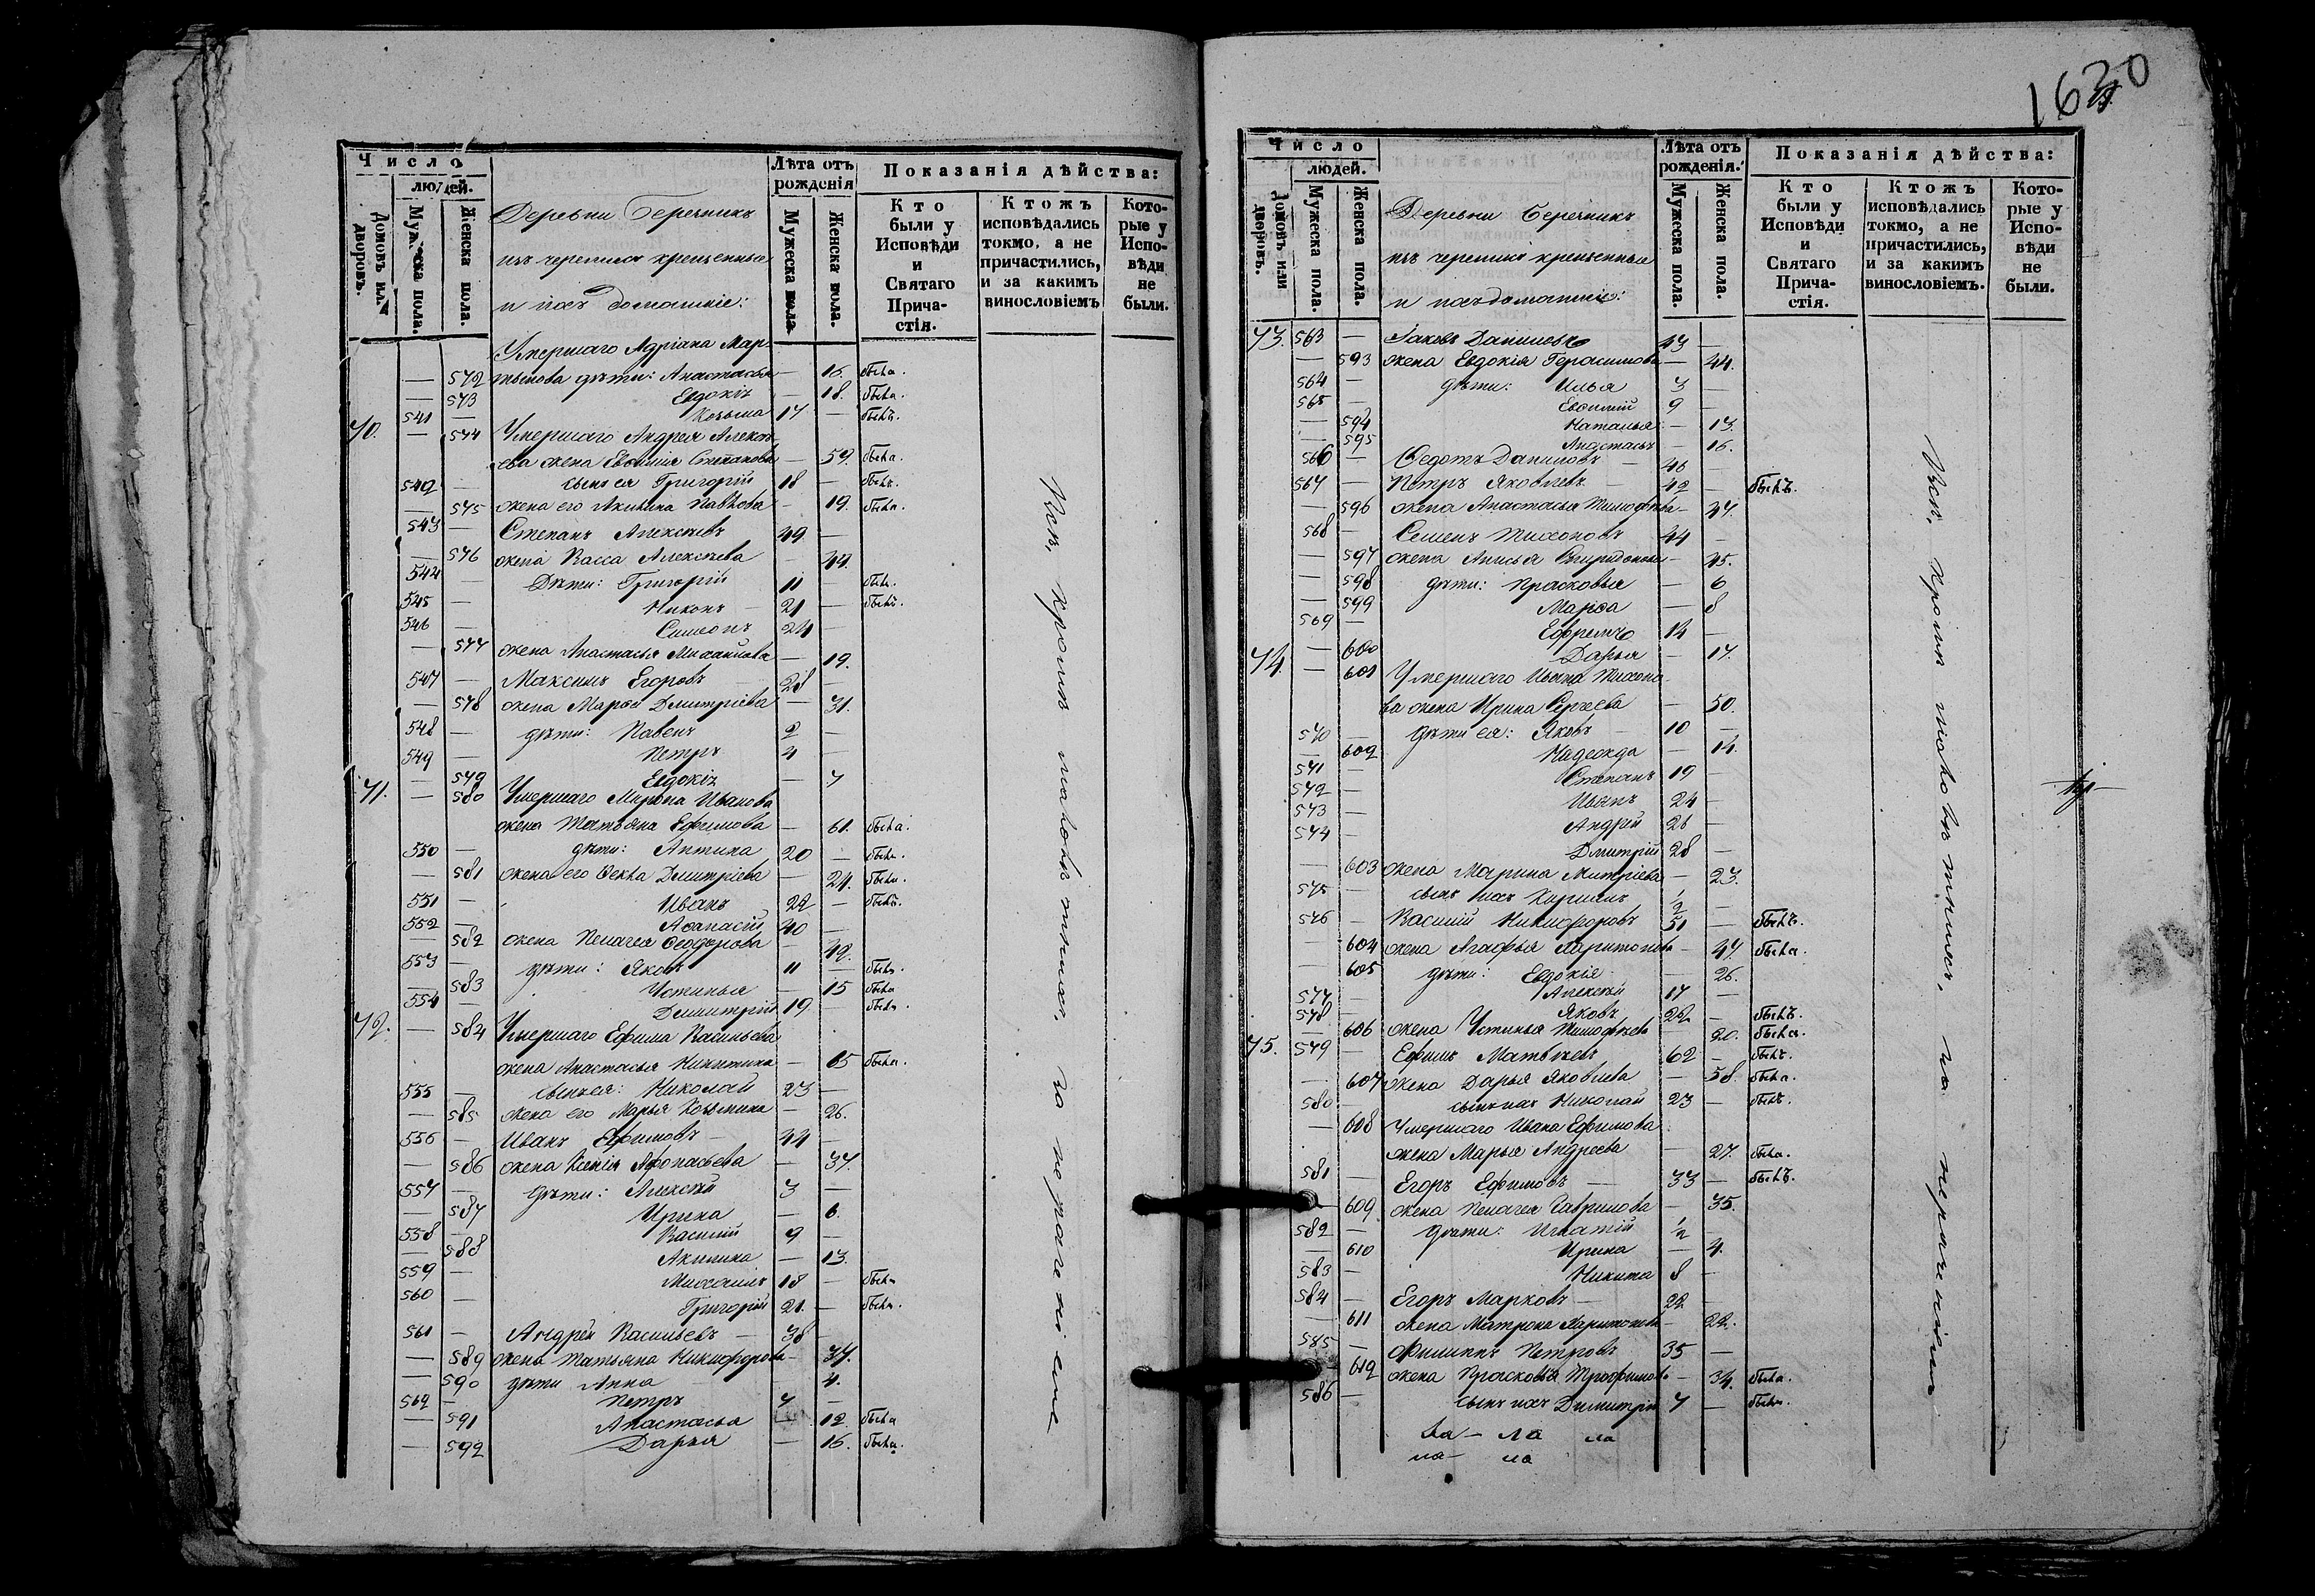 1630
Число
людей.
Домовъ или дворовъ.
Мужеска пола.
Женска пола.
Деревни Беречникъ
изъ черемисъ крещенные
и ихъ домашніе:
Лѣта отъ рожденія
Мужеска пола
Женска пола.
Показанія дѣйства:
Кто были у Исповѣди и Святаго Прича-стія.
Ктожъ исповѣдались токмо, а не причастились, и за какимъ винословіемъ
Кото-рые у Испо-вѣди не были.
Умершаго Адріана Мар-
— 572 тынова дѣти: Анастасья — 16. была.
— 573 Евдокія — 18. была.
541 — Козьма 17 — былъ.
70. — 574 Умершаго Андрея Алексѣ-
ева жена Евѳимія Степанова — 59. была.
542 — сынъ ея Григорій 18 — былъ.
— 575 жена его Акилина Павлова — 19. была.
543 — Степанъ Алексѣевъ 49 —
— 576 жена Васса Алексѣева — 44.
544 — Дѣти: Григорій 11 — былъ.
545 — Никонъ 21 — былъ.
546 — Симеонъ 24 —
— 577 жена Анастасья Михайлова — 19.
547 — Максимъ Егоровъ 28 —
— 578 жена Марья Дмитріева — 31.
548 — дѣти: Павелъ 2 —
549 — Петръ 4 —
— 579 Евдокія — 7
71. — 580 Умершаго Мирона Иванова
жена Татьяна Ефимова — 61. была.
550 — дѣти: Антипа 20 — былъ.
— 581 жена его Ѳекла Дмитріева — 24. была.
551 — Иванъ 22 — былъ.
552 — Аѳанасій 40 —
— 582 жена Пелагея Ѳеодорова — 42.
553 — дѣти: Яковъ 11 — былъ.
— 583 Устинья — 15 была
554 — Димитрій 19 — былъ.
72. — 584 Умершаго Ефима Васильева
жена Анастасья Никитина — 65 была.
555 — сынъ ея: Николай 23 —
— 585 жена его Марья Козьмина — 26.
556 — Иванъ Ефимовъ 44 —
— 586 жена Ксенія Афонасьева — 37.
557 — дѣти: Алексѣй 3 —
— 587 Ирина — 6.
558 — Василій 9 —
— 588 Акилина — 13.
559 — Михаилъ 18 — былъ
560 — Григорій 21. — былъ.
561 — Андрей Васильевъ 38 —
— 589 жена Татьяна Никифорова — 37.
— 590 дѣти Анна — 4.
562 — Петръ 7 —
— 591 Анастасья — 12. была
— 592 Дарья — 16. была.
Число
людей.
Домовъ или дворовъ.
Мужеска пола.
Женска пола.
Деревни Беречникъ
изъ черемисъ крещенные
и ихъ домашніе:
Лѣта отъ рожденія.
Мужеска пола.
Женска пола.
Показанія дѣйства:
Кто были у Исповѣди и Святаго Прича-стія.
Ктожъ исповѣдались токмо, а не причастились, и за какимъ винословіемъ.
Кото-рые у Испо-вѣди не были.
73. 563 — Іаковъ Даниловъ 43 —
— 593 жена Евдокія Герасимова — 44.
564 — дѣти: Илья 3 —
565 — Евѳимій 9 —
— 594 Наталья — 13.
— 595 Анастасья — 16.
566 — Ѳедотъ Даниловъ — 46 —
567 — Петръ Яковлевъ — 42 — былъ.
— 596 жена Анастасья Тимофѣева — 47.
568 — Семенъ Тихоновъ 44 —
— 597 жена Анисья Спиридонова — 45.
— 598 дѣти: Прасковья — 6
— 599 Марѳа — 8
569 — Ефремъ 14 —
— 600 Дарья — 17.
74. — 601 Умершаго Ивана Тихоно-
ва жена Ирина Сергѣева — 50.
570 — дѣти ея: Яковъ 10 —
— 602 Надежда — 14.
571 — Степанъ 19 —
572 — Иванъ 24 —
573 — Андрей 26 —
574 — Дмитрій 28 —
— 603 жена Марина Митріева — 23.
575 — сынъ ихъ Кириллъ ½ —
576 — Василій Никифоровъ 51 — былъ.
— 604 жена Агафья Харитонова — 47. была.
— 605 дѣти: Евдокія — 26.
577 — Алексѣй 17 —
578 — Яковъ 22 — былъ.
— 606 жена Устинья Тимофѣева — 20. была.
75. 579 — Ефимъ Матвѣевъ 62 — былъ.
— 607 жена Дарья Яковлева — 58. была.
580 — сынъ ихъ Николай 23 — былъ.
— 608 Умершаго Ивана Ефимова
жена Марья Андреева — 27. была.
581 — Егоръ Ефимовъ — 33 — былъ.
— 609 жена Пелагея Гаврилова — 35.
582 — дѣти: Игнатій ½ —
— 610 Ирина — 4.
583 — Никита 8 —
584 — Егоръ Марковъ — 22
— 611 жена Матрона Харитонова — 22.
585 — Филиппъ Петровъ 35 —
— 612 жена Прасковья Трофимова — 34. была.
586 — сынъ ихъ Димитрій 7 — былъ.